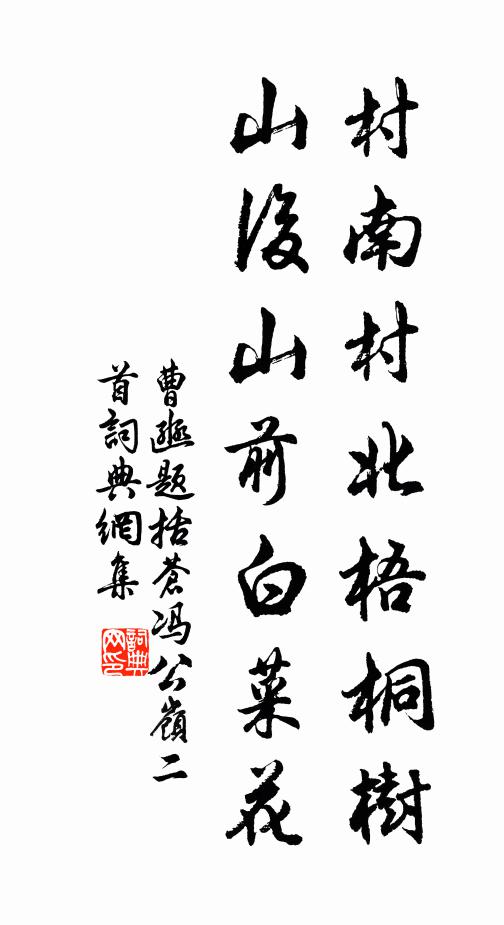 村南村北梧桐樹
山後山前白菜花
曹豳题括蒼冯公嶺二
首詞典網集
詞典
网印